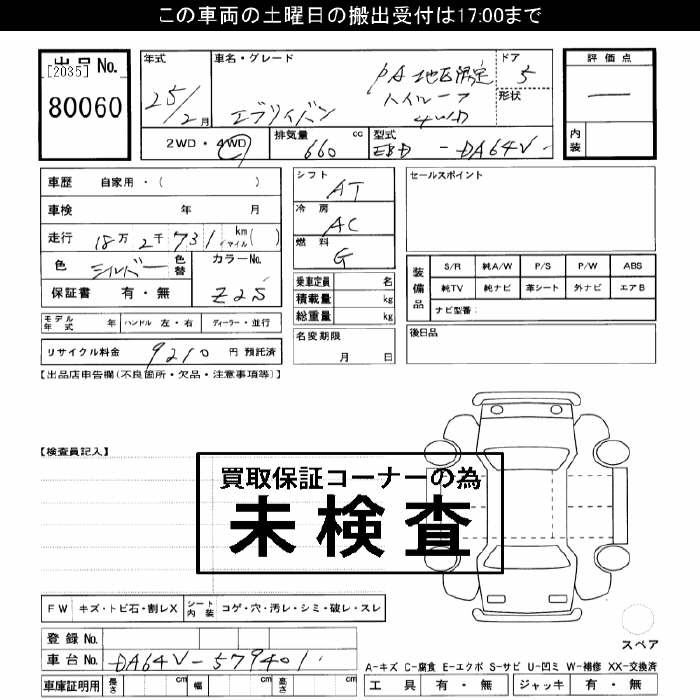 この車両の土曜日の搬出受付は17:00まで
出品 No.
[2035]
80060
年式
25/2月
車名・グレード
エブリイバン
PA 地区限定
ハイルーフ
4WD
ドア
5
形状
評価点
―
内装
2WD・4WD
排気量 cc
660
型式
EBD - DA64V -
車歴 自家用・( )
車検 年 月
走行 18万2千731 km マイル( )
色 シルバー 色替
カラーNo.
Z2S
保証書 有・無
モデル年式 年 ハンドル 左・右 ディーラー・並行
リサイクル料金 9210 円 預託済
シフト
AT
冷房
AC
燃料
G
乗車定員 名
積載量 kg
総重量 kg
名変期限
月 日
セールスポイント
装備品
S/R 純A/W P/S P/W ABS
純TV 純ナビ 革シート 外ナビ エアB
ナビ型番:
後日品
【出品店申告欄(不良箇所・欠品・注意事項等)】
【検査員記入】
買取保証コーナーの為
未検査
FW キズ・トビ石・割レX シート内装 コゲ・穴・汚レ・シミ・破レ・スレ
登録No.
車台No. DA64V-579401
車庫証明用 長さ cm 幅 cm 高さ cm
スペア
A-キズ C-腐食 E-エクボ S-サビ U-凹ミ W-補修 XX-交換済
工具 有・無 ジャッキ 有・無